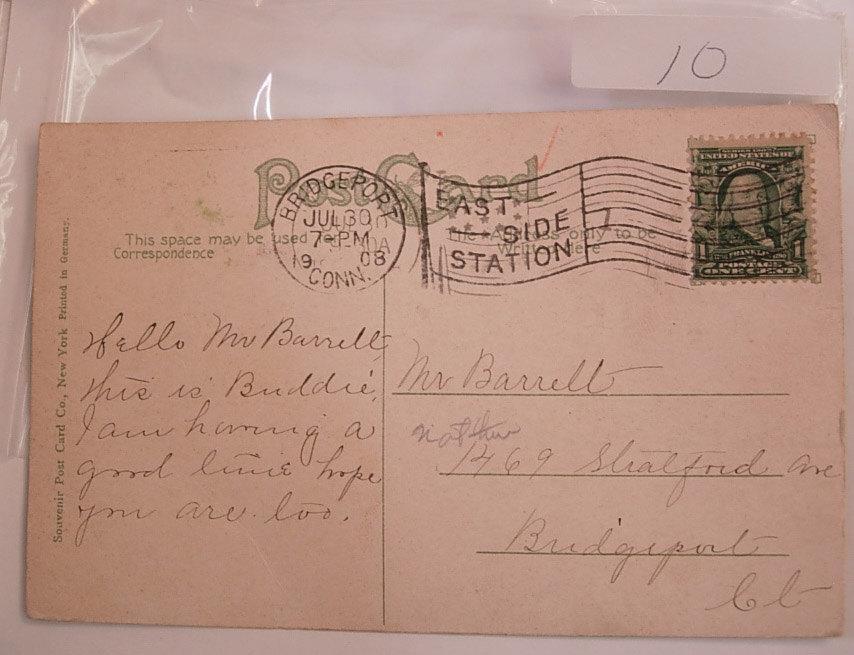 10
Post Card
BRIDGEPORT
JUL 30
7-PM
1908
CONN.
EAST
SIDE
STATION
UNITED STATES OF AMERICA
1 1
POSTAGE
ONE CENT
This space may be used for
Correspondence
The Address only to be
Written Here
Souvenir Post Card Co., New York Printed in Germany.
Hello Mr Barrett,
this is Buddie,
I am having a
good time hope
you are too.
Mr Barrett
not here
1469 Stratford Ave
Bridgeport
Ct